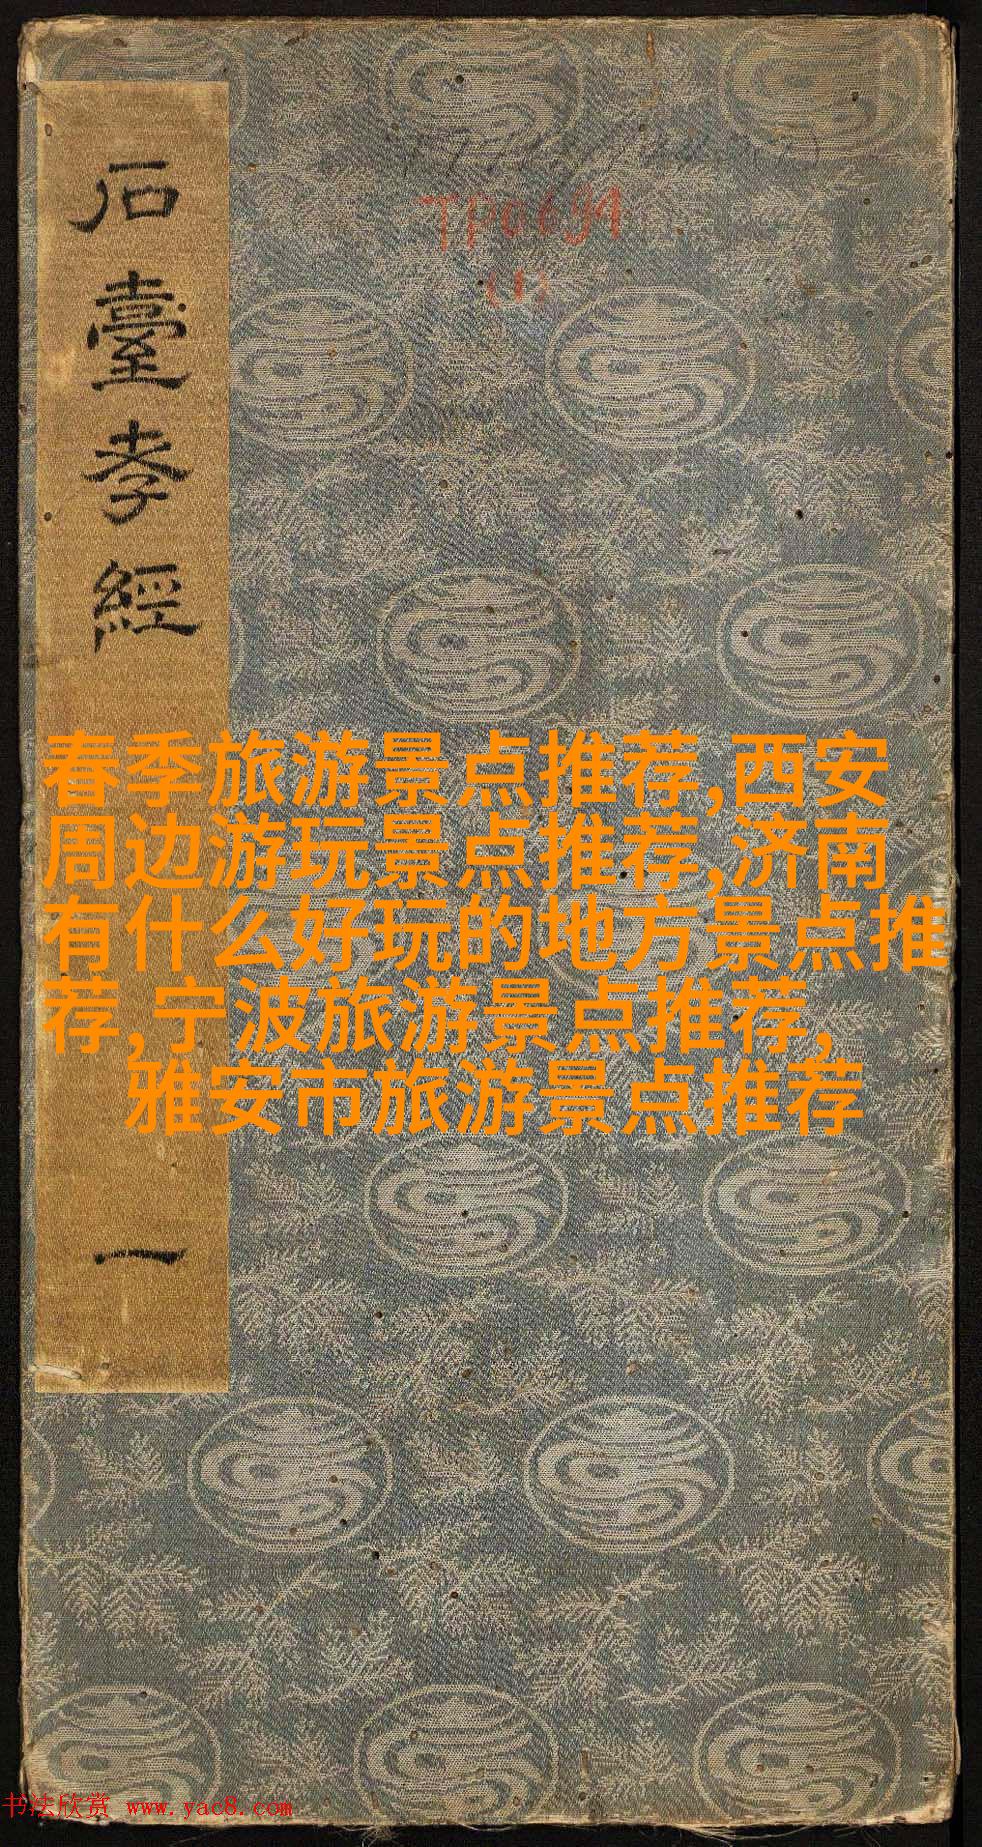 石臺孝經
一
TP0691
(1)
春季旅游景点推荐,西安
周边游玩景点推荐,济南
有什么好玩的地方景点推
荐,宁波旅游景点推荐,
雅安市旅游景点推荐
书法欣赏 www.yac8.com